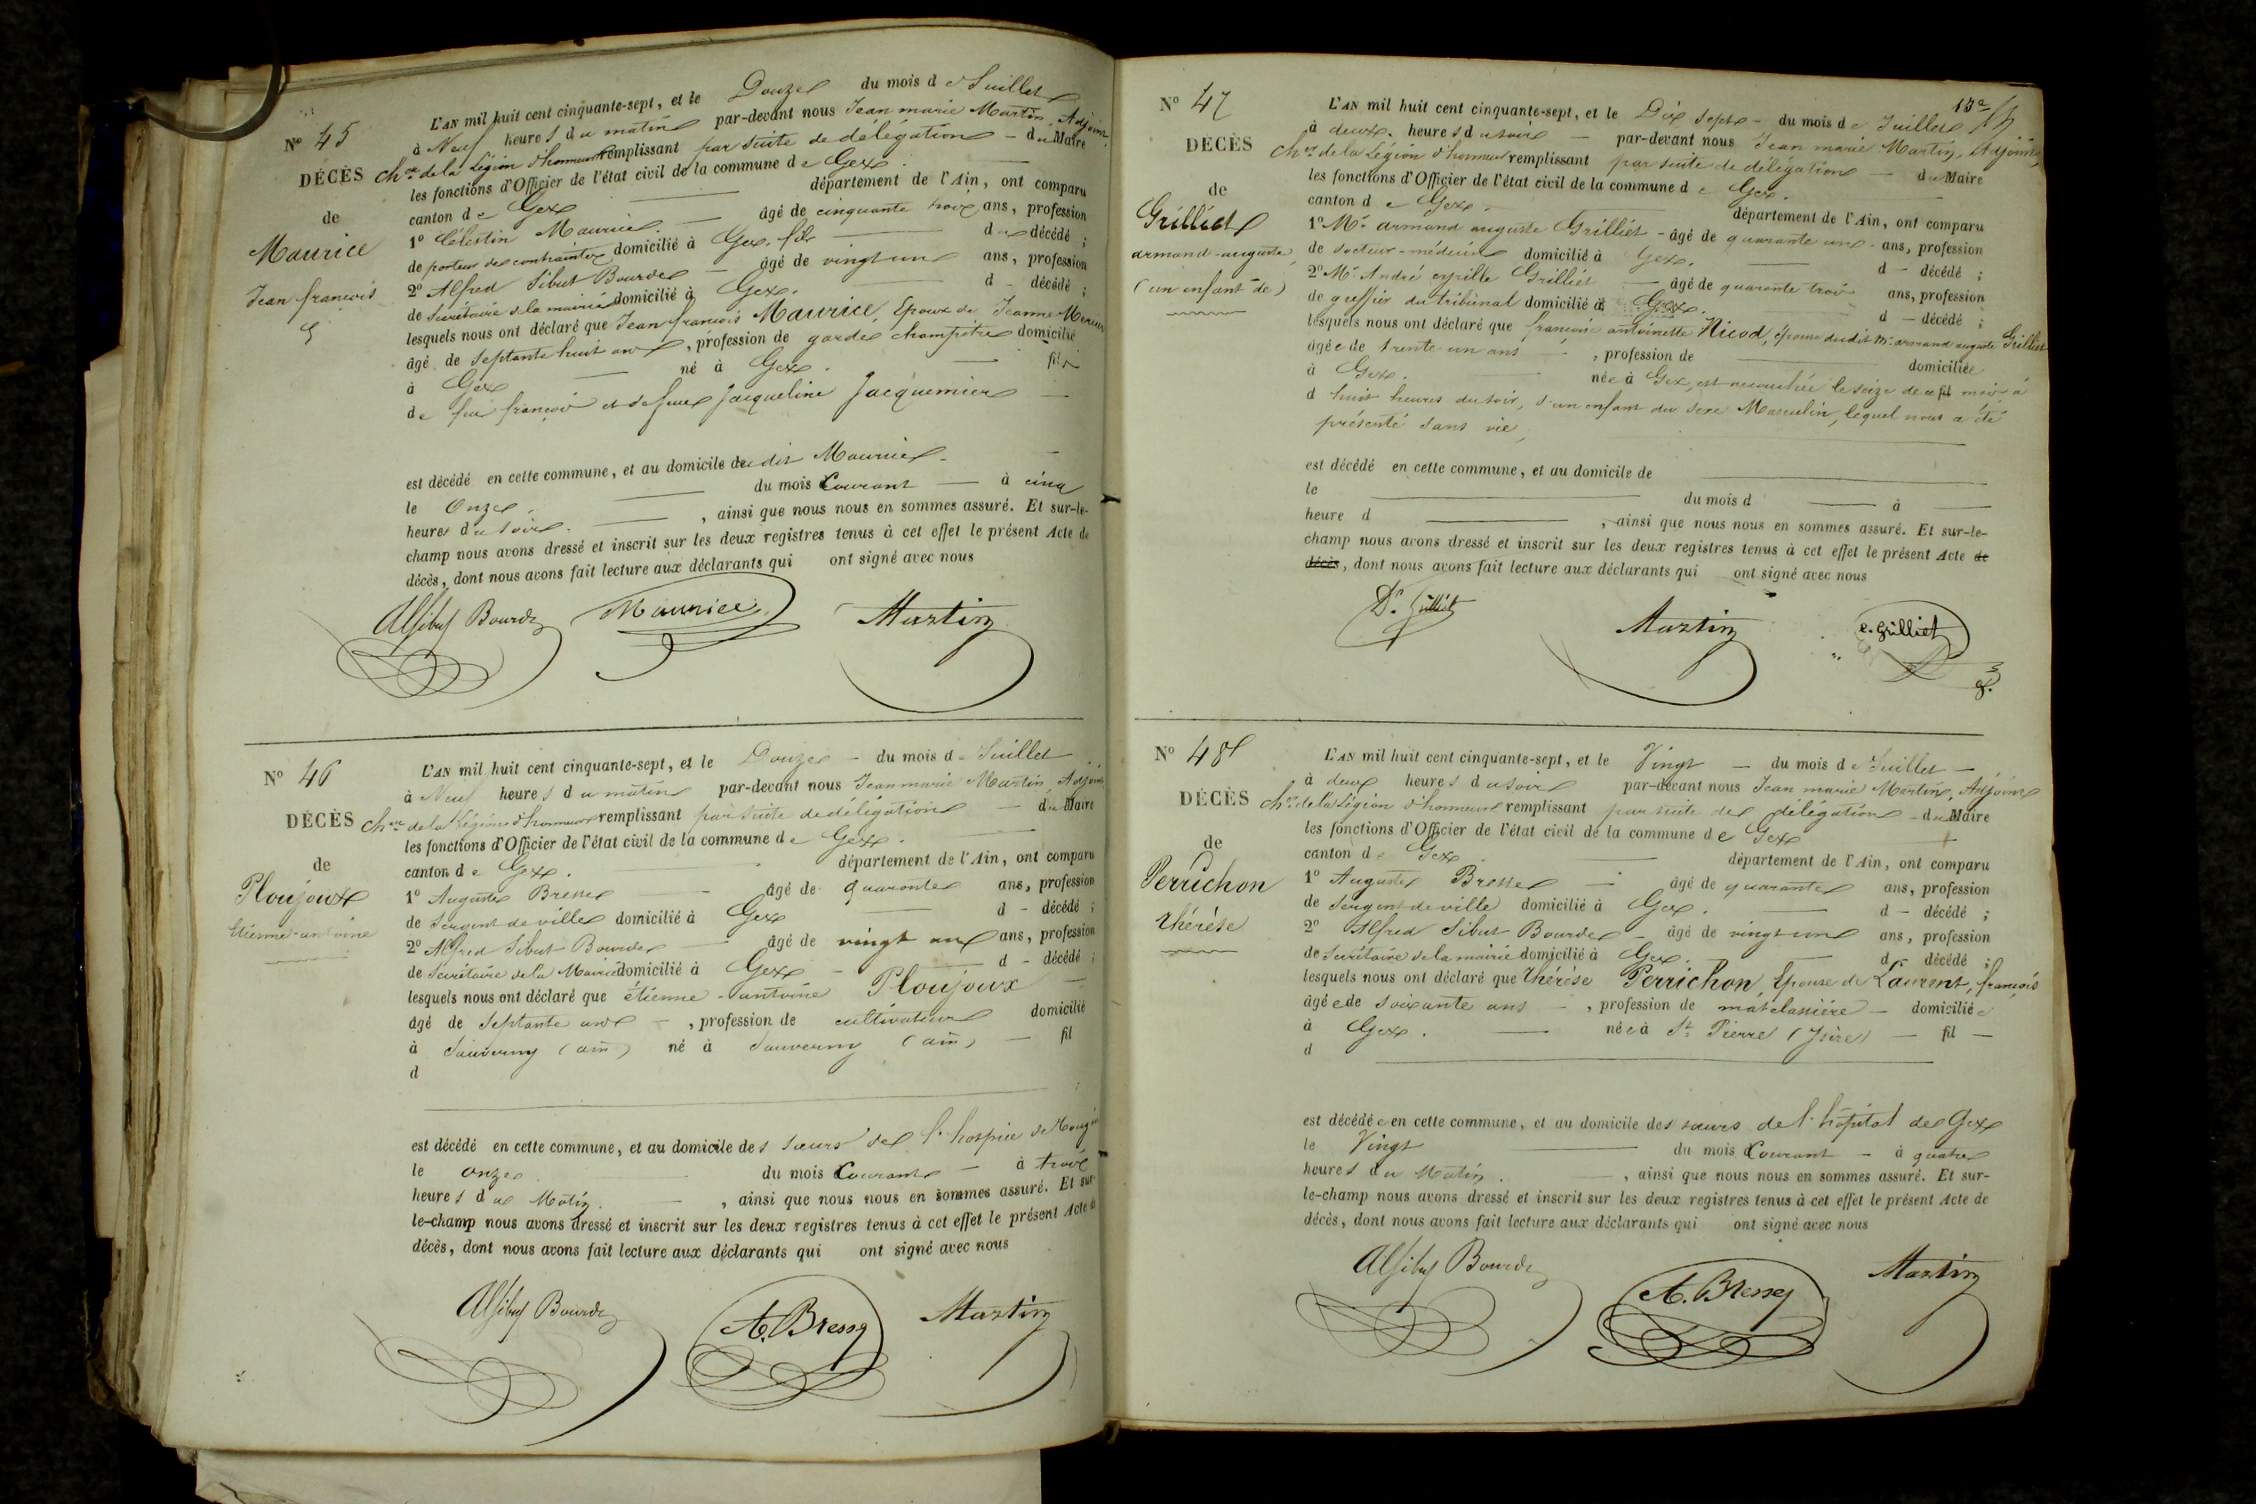 N° 45
DÉCÈS
de
Maurice
Jean françois
L'AN mil huit cent cinquante-sept, et le Douze du mois de Juillet
à Neuf heures du matin par-devant nous Jean marie Martin, Adjoint
Cher de la Légion d'honneur remplissant par suite de délégation – du Maire
les fonctions d'Officier de l'état civil de la commune de Gex.
canton de Gex département de l'Ain, ont comparu
1° Célestin Maurice – âgé de cinquante trois ans, profession
de porteur de contraintes domicilié à Gex, fils du décédé ;
2° Alfred Sibut Bourde – âgé de vingt un ans, profession
de Secrétaire de la mairie domicilié à Gex. d - décédé ;
lesquels nous ont déclaré que Jean françois Maurice, Epoux de Jeanne
âgé de septante huit ans, profession de garde champêtre domicilié
à Gex né à Gex. fils
de feu françois et de feue Jacqueline Jacquemier
est décédé en cette commune, et au domicile du dit Maurice
le Onze du mois Courant – à cinq
heures du soir. , ainsi que nous nous en sommes assuré. Et sur-le-
champ nous avons dressé et inscrit sur les deux registres tenus à cet effet le présent Acte de
décès, dont nous avons fait lecture aux déclarants qui ont signé avec nous
Alf Sibut Bourde Maurice Martin
N° 46
DÉCÈS
de
Ploujoux
Etienne-antoine
L'AN mil huit cent cinquante-sept, et le Douze – du mois d - Juillet
à Neuf heures du matin par-devant nous Jean marie Martin, Adjoint
Cher de la Légion d'honneur remplissant par suite de délégation – du Maire
les fonctions d'Officier de l'état civil de la commune de Gex.
canton de Gex. département de l'Ain, ont comparu
1° Auguste Bresse âgé de quarante ans, profession
de Sergent de ville domicilié à Gex d - décédé ;
2° Alfred Sibut Bourde âgé de vingt un ans, profession
de Secrétaire de la Mairie domicilié à Gex – d - décédé ;
lesquels nous ont déclaré que étienne - antoine Ploujoux
âgé de Septante ans – , profession de cultivateur domicilié
à Sauverny (ain) né à Sauverny (ain) – fil
d
est décédé en cette commune, et au domicile des sœurs de l'hospice de
le onze du mois Courant – à trois
heures du Matin. , ainsi que nous nous en sommes assuré. Et sur
le-champ nous avons dressé et inscrit sur les deux registres tenus à cet effet le présent Acte de
décès, dont nous avons fait lecture aux déclarants qui ont signé avec nous
Alf Sibut Bourde A. Bresse Martin
13e
N° 47
DÉCÈS
de
Grilliet
armand-auguste,
(un enfant de)
L'AN mil huit cent cinquante-sept, et le Dix sept – du mois de Juillet
à deux heures du soir – par-devant nous Jean marie Martin, Adjoint,
Cher de la Légion d'honneur remplissant par suite de délégation – du Maire
les fonctions d'Officier de l'état civil de la commune de Gex.
canton de Gex. département de l'Ain, ont comparu
1° Mr armand auguste Grilliet – âgé de quarante un – ans, profession
de docteur-médecin domicilié à Gex. d – décédé ;
2° Mr André cyrille Grilliet – âgé de quarante trois ans, profession
de greffier du tribunal domicilié à Gex. d – décédé ;
lesquels nous ont déclaré que françoise antoinette Nicod, épouse dudit Mr armand auguste Grilliet
âgée de trente un ans – , profession de domiciliée
à Gex. née à Gex, est accouchée le seize de ce mois à
d huit heures du soir, d'un enfant du sexe Masculin, lequel nous a été
présenté sans vie,
est décédé en cette commune, et au domicile de
le du mois d à
heure d , ainsi que nous nous en sommes assuré. Et sur-le-
champ nous avons dressé et inscrit sur les deux registres tenus à cet effet le présent Acte de
décès, dont nous avons fait lecture aux déclarants qui ont signé avec nous
Dr Grilliet Martin c. Grilliet
N° 48
DÉCÈS
de
Perrichon
thérèse
L'AN mil huit cent cinquante-sept, et le Vingt – du mois de Juillet –
à deux heures du soir par-devant nous Jean marie Martin, Adjoint
Cher de la Légion d'honneur remplissant par suite de délégation – du Maire
les fonctions d'Officier de l'état civil de la commune de Gex
canton de Gex département de l'Ain, ont comparu
1° Auguste Bresse – âgé de quarante ans, profession
de Sergent de ville domicilié à Gex. d – décédé ;
2° Alfred Sibut Bourde – âgé de vingt un ans, profession
de Secrétaire de la mairie domicilié à Gex. d – décédé ;
lesquels nous ont déclaré que thérèse Perrichon, Epouse de Laurent, françois
âgée de soixante ans – , profession de matelassière – domiciliée
à Gex. née à St Pierre (Isère) – fil –
d
est décédée en cette commune, et au domicile des sœurs de l'hôpital de Gex
le Vingt du mois Courant – à quatre
heures du Matin. , ainsi que nous nous en sommes assuré. Et sur-
le-champ nous avons dressé et inscrit sur les deux registres tenus à cet effet le présent Acte de
décès, dont nous avons fait lecture aux déclarants qui ont signé avec nous
Alf Sibut Bourde A. Bresse Martin